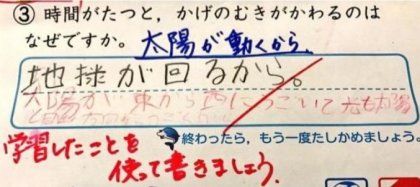 ③ 時間がたつと、かげのむきがかわるのは
なぜですか。太陽が動くから。
地球が回るから。
太陽が東から西にうごいて
終わったら、もう一度たしかめましょう。
学習したことを
使って書きましょう。